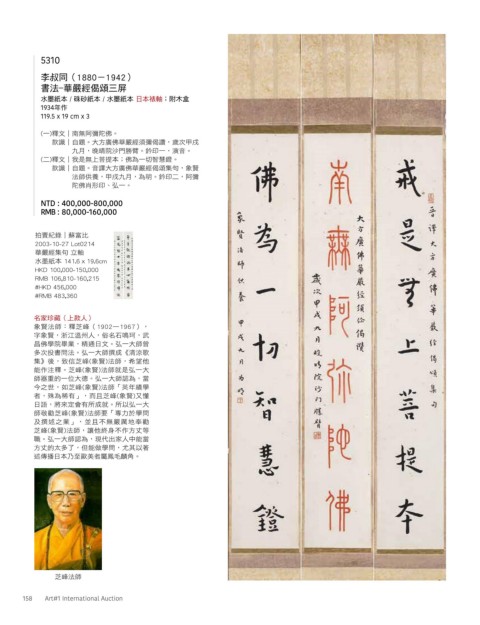 5310
李叔同（1880－1942）
書法–華嚴經偈頌三屏
水墨紙本 / 硃砂紙本 / 水墨紙本 日本裱軸；附木盒
1934年作
119.5 x 19 cm x 3
(一)釋文｜南無阿彌陀佛。
款識｜自題。大方廣佛華嚴經須彌偈讚，歲次甲戌
九月，晚晴院沙門勝臂。鈐印一，演音。
(二)釋文｜我是無上菩提本；佛為一切智慧鐙。
款識｜自題。晉譯大方廣佛華嚴經偈頌集句，象賢
法師供養，甲戌九月，為明。鈐印二，阿彌
陀佛肖形印、弘一。
NTD : 400,000-800,000
RMB : 80,000-160,000
拍賣紀錄｜蘇富比
2003-10-27 Lot0214
華嚴經集句 立軸
水墨紙本 141.6 x 19.6cm
HKD 100,000-150,000
RMB 106,810-160,215
#HKD 456,000
#RMB 483,360
名家珍藏（上款人）
象賢法師：釋芝峰（1902－1967），
字象賢，浙江溫州人，俗名石鳴珂，武
昌佛學院畢業，精通日文。弘一大師曾
多次投書問法，弘一大師撰成《清涼歌
集》後，致信芝峰(象賢)法師，希望他
能作注釋。芝峰(象賢)法師就是弘一大
師器重的一位大德，弘一大師認為，當
今之世，如芝峰(象賢)法師「英年績學
者，殊為稀有」，而且芝峰(象賢)又懂
日語，將來定會有所成就，所以弘一大
師敬勸芝峰(象賢)法師要「專力於學問
及撰述之業」，並且不無嚴厲地奉勸
芝峰(象賢)法師，讓他終身不作方丈等
職。弘一大師認為，現代出家人中能當
方丈的太多了，但能做學問，尤其以著
述傳播日本乃至歐美者屬鳳毛麟角。
芝峰法師
我是無上菩提本
晉譯大方廣佛華嚴經偈頌集句
南無阿彌陀佛
大方廣佛華嚴經須彌偈讚
歲次甲戌九月晚晴院沙門勝臂
佛為一切智慧鐙
象賢法師供養
甲戌九月為明
158 Art#1 International Auction